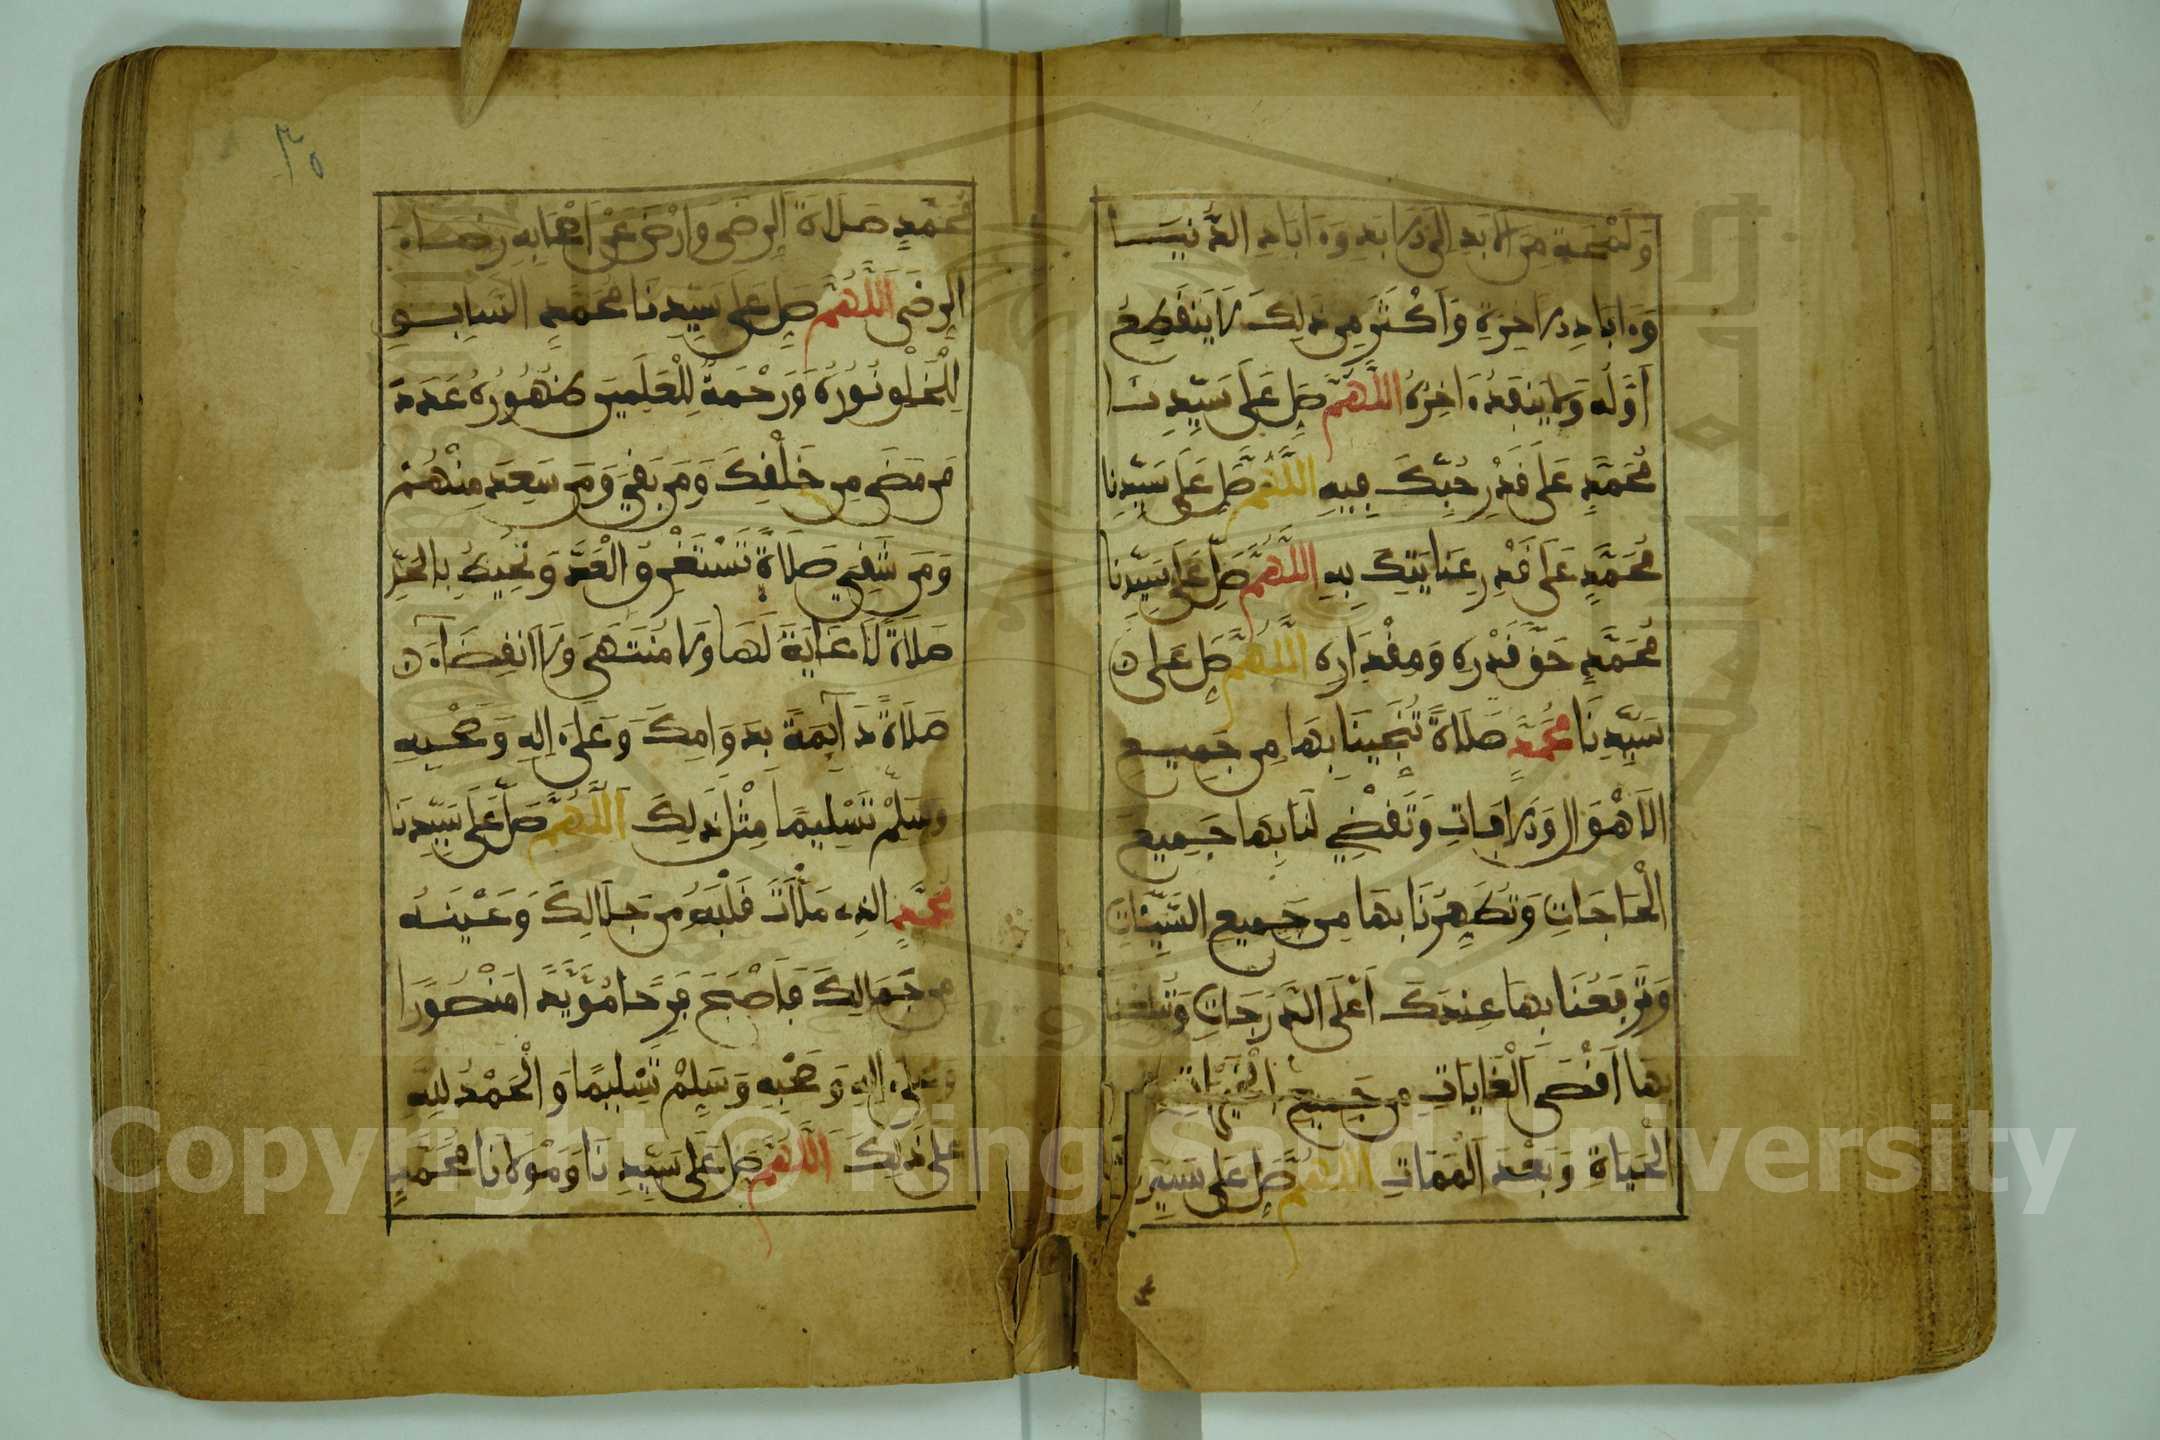 وَلَمْحَةٍ مِنَ الْاَبَدِ اِلَى الْاَبَدِ وَءَابَادِ الدُّنْيَــا
وَءَابَادِ الْاَخِرَةِ وَاَكْثَرَ مِن ذَلِكَ لَا يَنقَطِعُ
اَوَّلُهُ وَلَا يَنفَدُ ءَاخِرُهُ اللَّهُمَّ صَلِّ عَلَى سَيِّدِنَــا
مُحَمَّدٍ عَلَى قَدْرِ حُبِّكَ فِيهِ اللَّهُمَّ صَلِّ عَلَى سَيِّدِنَا
مُحَمَّدٍ عَلَى قَدْرِ عِنَايَتِكَ بِهِ اللَّهُمَّ صَلِّ عَلَى سَيِّدِنَا
مُحَمَّدٍ حَقَّ قَدْرِهِ وَمِقْدَارِهِ اللَّهُمَّ صَلِّ عَلَى
سَيِّدِنَا مُحَمَّدٍ صَلَاةً تُنْجِينَا بِهَا مِن جَمِيــعِ
الْاَهْوَالِ وَالْاَفَاتِ وَتَقْضِي لَنَا بِهَا جَمِيعَ
الْحَاجَاتِ وَتُطَهِّرُنَا بِهَا مِن جَمِيعِ السَّيِّئَاتِ
وَتَرْفَعُنَا بِهَا عِندَكَ اَعْلَى الدَّرَجَاتِ وَتُبَلِّغُنَا
بِهَا اَقْصَى الْغَايَاتِ مِن جَمِيعِ الْخَيْرَاتِ
الْحَيَاةِ وَبَعْدَ الْمَمَاتِ اللَّهُمَّ صَلِّ عَلَى سَيِّدِنَا
٣٥
مُحَمَّدٍ صَلَاةَ الرِّضَى وَارْضَ عَنْ اَصْحَابِهِ رِضَــاءَ
الرِّضَى اللَّهُمَّ صَلِّ عَلَى سَيِّدِنَا مُحَمَّدٍ السَّابِــقِ
لِلْخَلْقِ نُورُهُ وَرَحْمَةٌ لِلْعَلَمِينَ ظُهُورُهُ عَدَدَ
مَن مَضَى مِن خَلْقِكَ وَمَن بَقِيَ وَمَن سَعِدَ مِنْهُمْ
وَمَن شَقِيَ صَلَاةً تَسْتَغْرِقُ الْعَدَّ وَتُحِيطُ بِالْحَدِّ
صَلَاةً لَا غَايَةَ لَهَا وَلَا مُنتَهَى وَلَا انقِضَاءَ
صَلَاةً دَآئِمَةً بِدَوَامِكَ وَعَلَى ءَالِهِ وَصَحْبِهِ
وَسَلِّمْ تَسْلِيمًا مِثْلَ ذَلِكَ اللَّهُمَّ صَلِّ عَلَى سَيِّدِنَا
مُحَمَّدٍ الذِي مَلَأْتَ قَلْبَهُ مِن جَلَالِكَ وَعَيْنَــهُ
مِن جَمَالِكَ فَاَصْبَحَ فَرِحًا مُؤَيَّدًا مَنْصُورًا
وَعَلَى ءَالِهِ وَصَحْبِهِ وَسَلِّمْ تَسْلِيمًا وَالْحَمْدُ لِلَّهِ
عَلَى ذَلِكَ اللَّهُمَّ صَلِّ عَلَى سَيِّدِنَا وَمَوْلَانَا مُحَمَّدٍ
Copyright © King Saud University